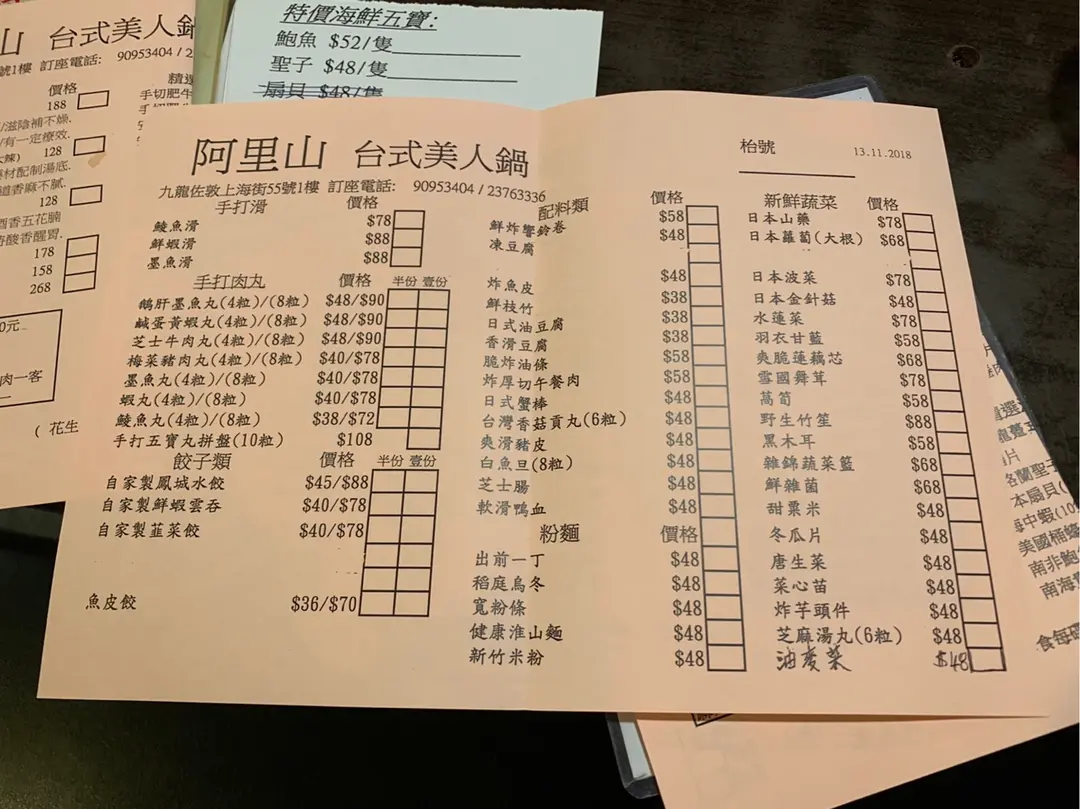 山 台式美人鍋
號1樓 訂座電話: 90953404 / 2
價格
188
/滋陰補不燥.
/有一定療效.
128
128
178
158
268
肉一客
( 花生
特價海鮮五寶:
鮑魚 $52/隻
聖子 $48/隻
扇貝 $48/隻
阿里山 台式美人鍋
枱號
13.11.2018
九龍佐敦上海街55號1樓 訂座電話: 90953404 / 23763336
手打滑 價格
鯪魚滑 $78
鮮蝦滑 $88
墨魚滑 $88
手打肉丸 價格 半份 壹份
鵝肝墨魚丸(4粒)/(8粒) $48/$90
鹹蛋黃蝦丸(4粒)/(8粒) $48/$90
芝士牛肉丸(4粒)/(8粒) $48/$90
梅菜豬肉丸(4粒)/(8粒) $40/$78
墨魚丸(4粒)/(8粒) $40/$78
蝦丸(4粒)/(8粒) $40/$78
鯪魚丸(4粒)/(8粒) $38/$72
手打五寶丸拼盤(10粒) $108
餃子類 價格 半份 壹份
自家製鳳城水餃 $45/$88
自家製鮮蝦雲吞 $40/$78
自家製韮菜餃 $40/$78
魚皮餃 $36/$70
配料類 價格
鮮炸響鈴卷 $58
凍豆腐 $48
炸魚皮 $48
鮮枝竹 $38
日式油豆腐 $38
香滑豆腐 $38
脆炸油條 $58
炸厚切午餐肉 $58
日式蟹棒 $48
台灣香菇貢丸(6粒) $48
爽滑豬皮 $48
白魚旦(8粒) $48
芝士腸 $48
軟滑鴨血 $48
粉麵 價格
出前一丁 $48
稻庭烏冬 $48
寬粉條 $48
健康淮山麵 $48
新竹米粉 $48
新鮮蔬菜 價格
日本山藥 $78
日本蘿蔔(大根) $68
日本波菜 $78
日本金針菇 $48
水蓮菜 $78
羽衣甘藍 $58
爽脆蓮藕芯 $68
雪國舞茸 $78
萵筍 $58
野生竹笙 $88
黑木耳 $58
雜錦蔬菜籃 $68
鮮雜菌 $68
甜粟米 $48
冬瓜片 $48
唐生菜 $48
菜心苗 $48
炸芋頭件 $48
芝麻湯丸(6粒) $48
油麥菜 $48